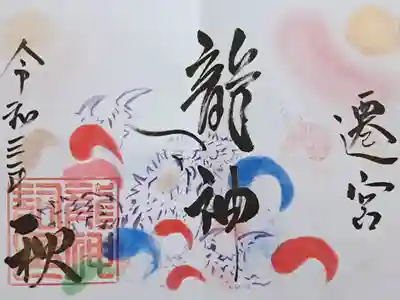 遷宮
龍神
令和三年
秋